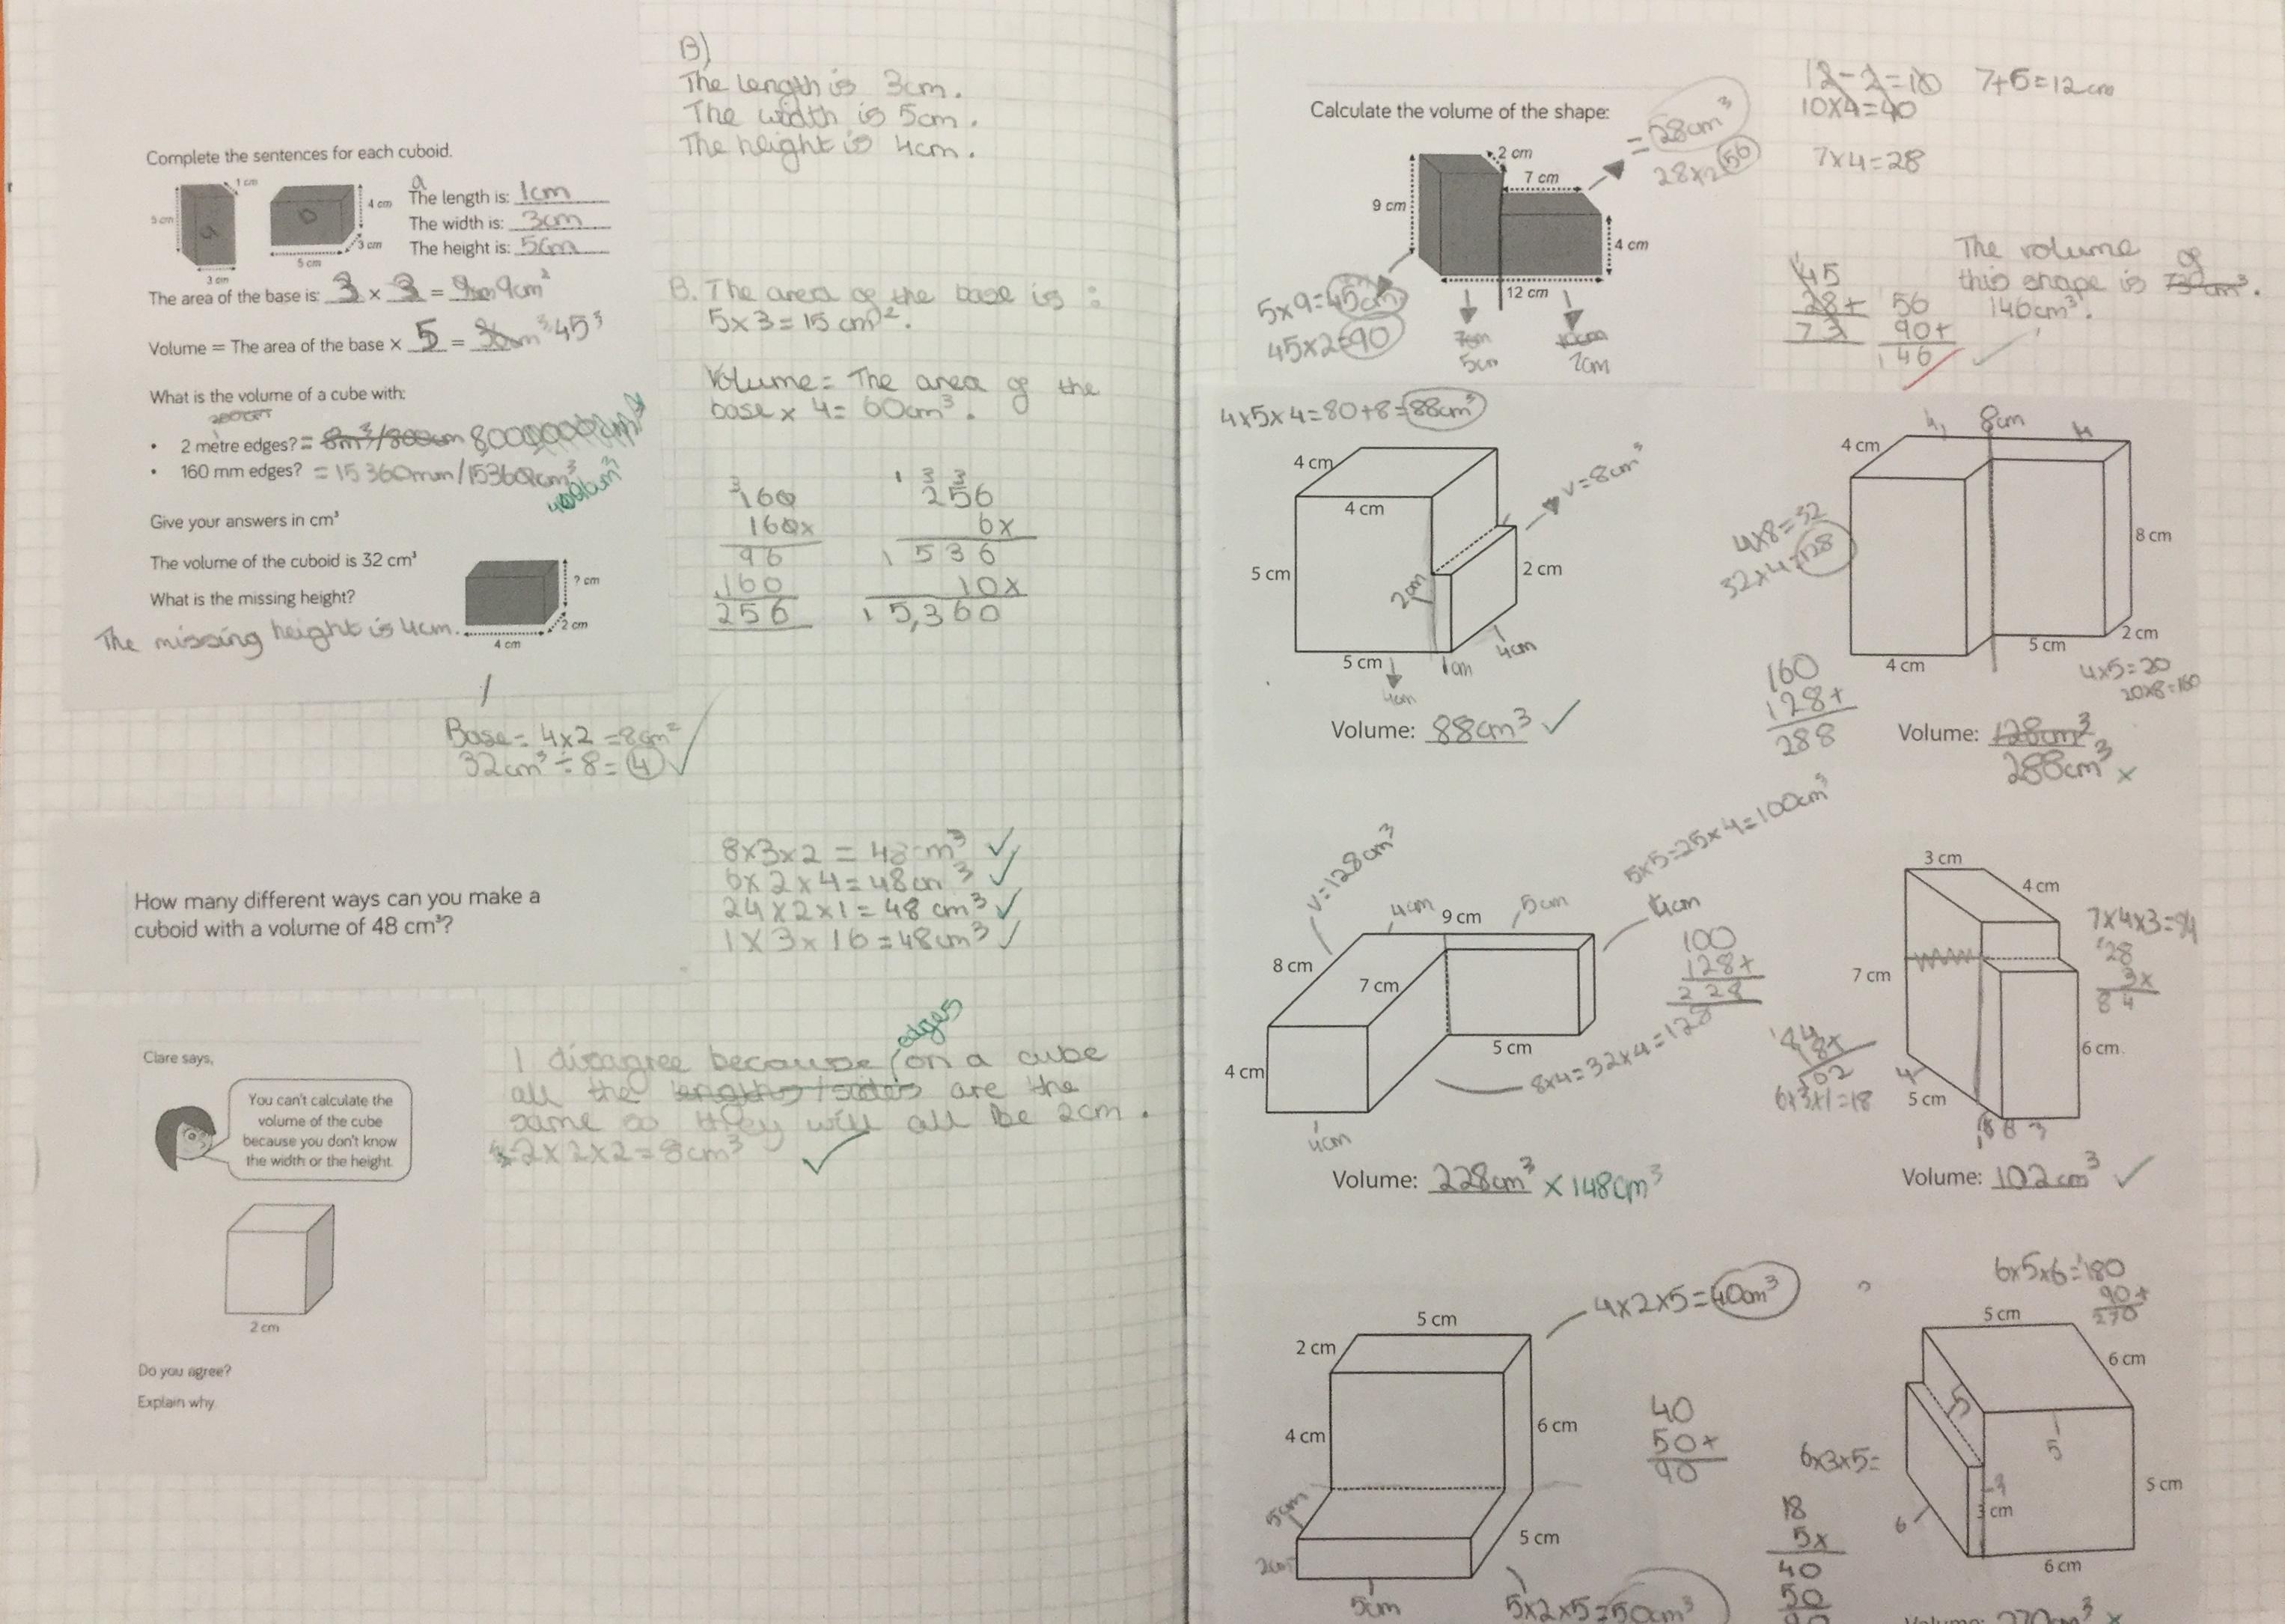 Complete the sentences for each cuboid.
1 cm
5 cm
a
3 cm
b
4 cm
3 cm
5 cm
a
The length is: 1cm
The width is: 3cm
The height is: 5cm
The area of the base is: 3 × 3 = 9cm²
Volume = The area of the base × 5 = 45³
What is the volume of a cube with:
200cm
• 2 metre edges? = 8m³/800cm 8000000cm³
• 160 mm edges? = 15360mm/15360cm³
Give your answers in cm³
The volume of the cuboid is 32 cm³
What is the missing height?
The missing height is 4cm.
? cm
2 cm
4 cm
Base = 4x2 = 8cm²
32cm³ ÷ 8 = 4
B)
The length is 3cm.
The width is 5cm.
The height is 4cm.
B. The area of the base is :
5x3 = 15 cm².
Volume = The area of the
base x 4 = 60cm³.
160
160x
96
160
256
256
6x
1536
10x
15,360
How many different ways can you make a
cuboid with a volume of 48 cm³?
8x3x2 = 48cm³ ✓
6x2x4 = 48cm³ ✓
24x2x1 = 48cm³ ✓
1x3x16 = 48cm³ ✓
Clare says,
You can't calculate the
volume of the cube
because you don't know
the width or the height.
2 cm
Do you agree?
Explain why.
edges
I disagree because on a cube
all the lengths/sides are the
same so they will all be 2cm.
2x2x2 = 8cm³
Calculate the volume of the shape:
2 cm
7 cm
9 cm
4 cm
12 cm
= 28cm³
28x2 56
5x9=45cm
45x2=90
7cm
5cm
10cm
7cm
12-2=10
10x4=40
7x4=28
7+5=12cm
45
28+
73
56
90+
146
The volume of
this shape is 730cm³.
146cm³.
4x5x4=80+8=88cm³
4 cm
4 cm
5 cm
2cm
2 cm
v=8cm³
4cm
5 cm
1cm
4cm
Volume: 88cm³ ✓
4 8cm 4
4 cm
8 cm
2 cm
5 cm
4 cm
4x8=32
32x4=128
4x5=20
20x8=160
160
128+
288
Volume: 128cm³
288cm³ x
v=128cm³
4cm
9 cm
5cm
4cm
5x5=25x4=100cm³
8 cm
7 cm
4 cm
5 cm
4cm
8x4=32x4=128
100
128+
228
Volume: 228cm³ x 148cm³
3 cm
4 cm
7 cm
6 cm
4
5 cm
3
7x4x3=84
28
3x
84
84
18+
102
6x3x1=18
Volume: 102cm³ ✓
4x2x5=40cm³
5 cm
2 cm
4 cm
6 cm
5cm
5 cm
2cm
5cm
5x2x5=50cm³
40
50+
90
6x5x6=180
90+
270
5 cm
6 cm
5
5
5 cm
3 cm
6
6 cm
6x3x5=
18
5x
40
50
90
Volume: 270cm³ x